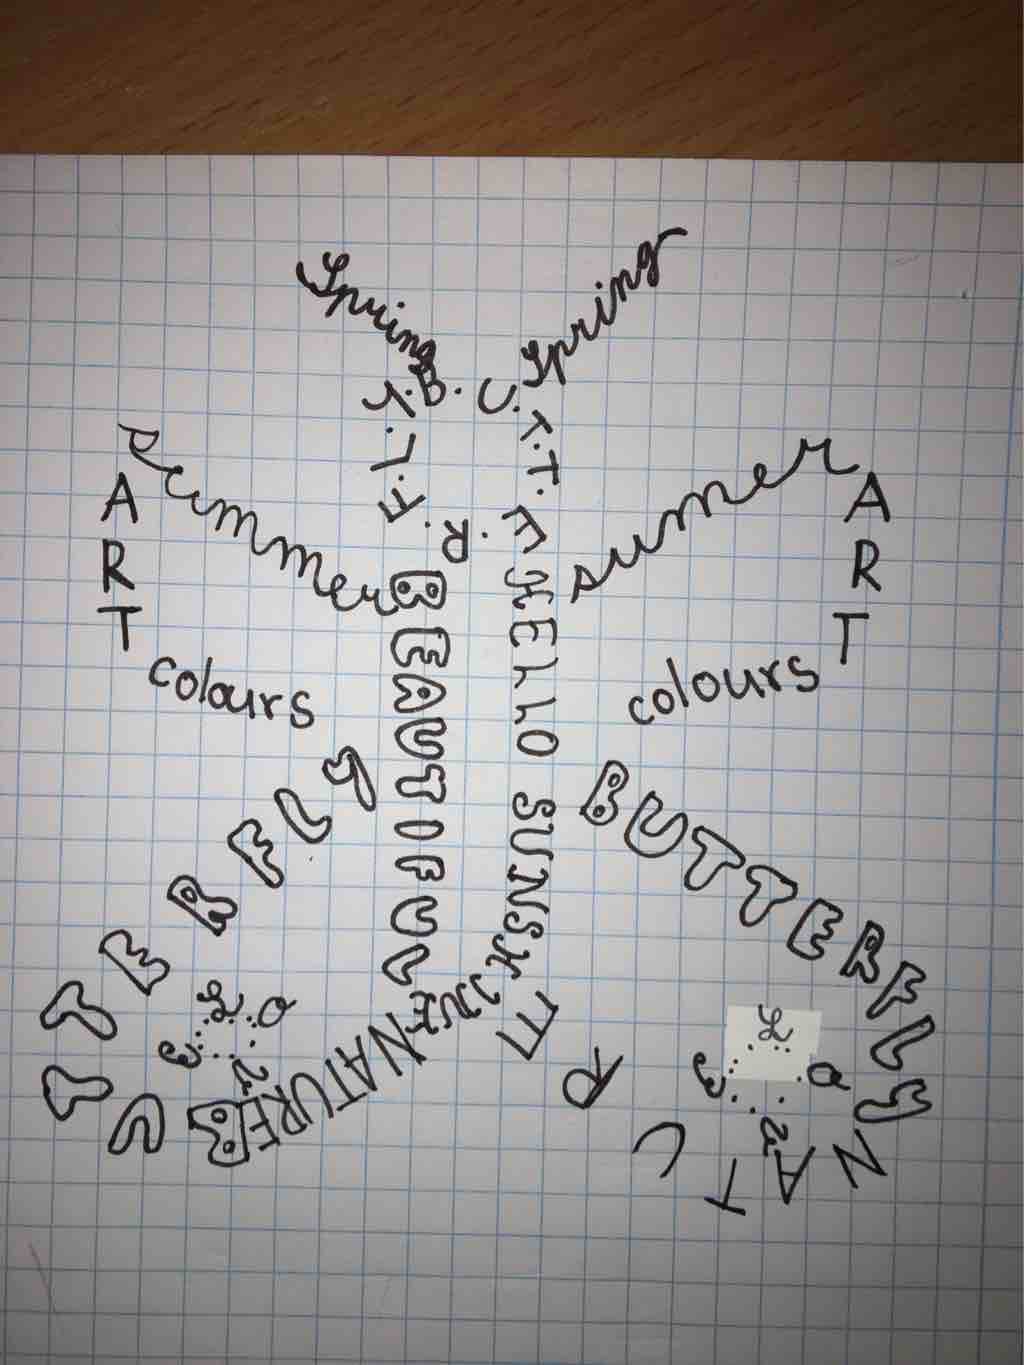 Spring
Spring
B.U.T.T.E.R.F.L.Y.
summer
sumer
ART
ART
colours
colours
BEAUTIFUL
HELLO SUNSHINE
BUTTERFLY
BUTTERFLY
NATURE
NATURE